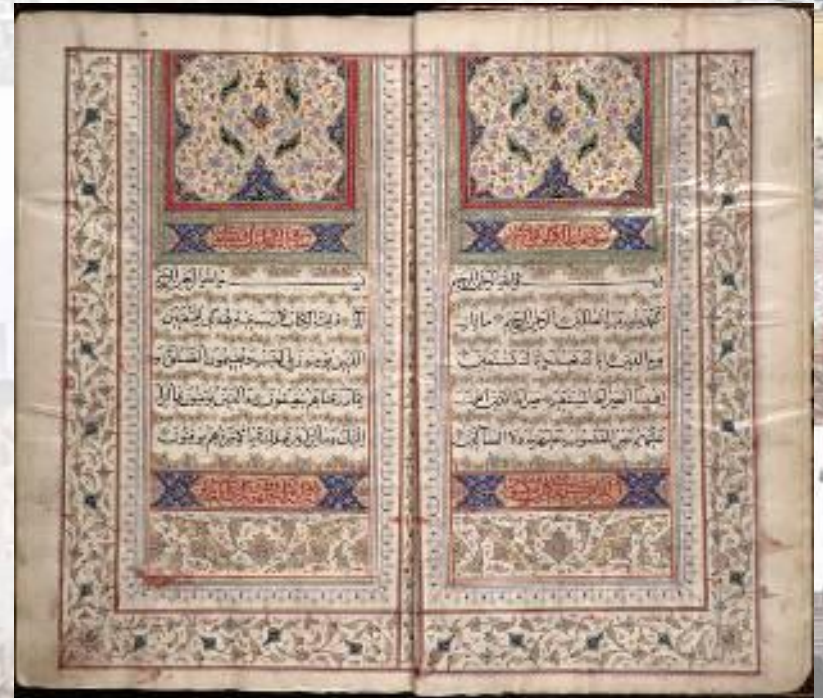 بسم الله الرحمن الرحيم
الحمد لله رب العالمين الرحمن الرحيم مالك
يوم الدين اياك نعبد و اياك نستعين
اهدنا الصراط المستقيم صراط الذين انعمت
عليهم غير المغضوب عليهم ولا الضالين
بسم الله الرحمن الرحيم
الم ذلك الكتاب لا ريب فيه هدى للمتقين
الذين يؤمنون بالغيب ويقيمون الصلوة و
مما رزقناهم ينفقون والذين يؤمنون بما انزل
اليك وما انزل من قبلك وبالاخرة هم يوقنون